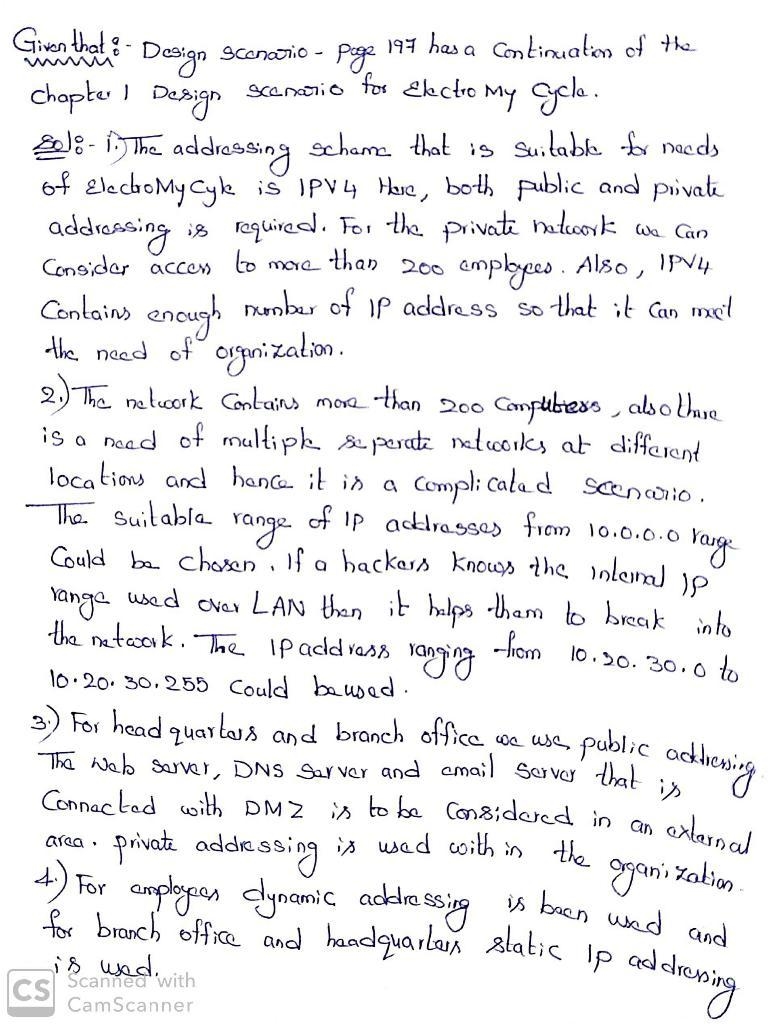 Given that :- Design scenario - page 197 has a Continuation of the
chapter 1 Design scenario for Electro My Cycle.
Sol:- 1.) The addressing scheme that is suitable for needs
of ElectroMyCyle is IPV4 Here, both public and private
addressing is required. For the private network we can
Consider access to more than 200 employees. Also, IPV4
Contains enough number of IP address so that it can meet
the need of organization.
2.) The network Contains more than 200 Computers, also there
is a need of multiple seperate networks at different
locations and hence it is a complicated scenario.
The suitable range of IP addresses from 10.0.0.0 range
Could be chosen. If a hackers knows the internal IP
range used over LAN then it helps them to break into
the network. The IP address ranging from 10.20.30.0 to
10.20.30.255 could be used.
3.) For head quarters and branch office we use public addressing.
The web server, DNS server and email server that is
Connected with DMZ is to be considered in an external
area. private addressing is used with in the organization.
4.) For employees dynamic addressing is been used and
for branch office and headquarters static IP addressing
is used.
CS Scanned with
CamScanner